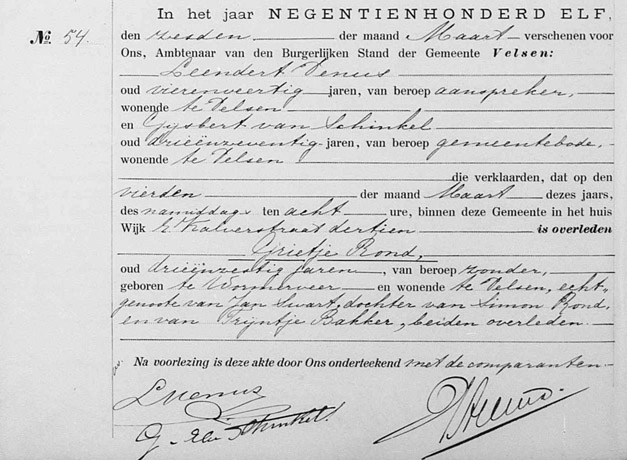 In het jaar NEGENTIENHONDERD ELF,
№. 54. den zesden der maand Maart verschenen voor
Ons, Ambtenaar van den Burgerlijken Stand der Gemeente Velsen:
Leendert Venus
oud vierenveertig jaren, van beroep aanspreker,
wonende te Velsen
en Gijsbert van Schinkel
oud drieënzeventig jaren, van beroep gemeentebode,
wonende te Velsen
die verklaarden, dat op den
vierden der maand Maart dezes jaars,
des namiddags ten acht ure, binnen deze Gemeente in het huis
Wijk K. Kalverstraat dertien is overleden
Grietje Rond,
oud drieënzestig jaren, van beroep zonder,
geboren te Wormerveer en wonende te Velsen, echt-
genoote van Jan Swart, dochter van Simon Rond
en van Trijntje Bakker, beiden overleden.
Na voorlezing is deze akte door Ons onderteekend met de comparanten
L Venus
G. v Schinkel